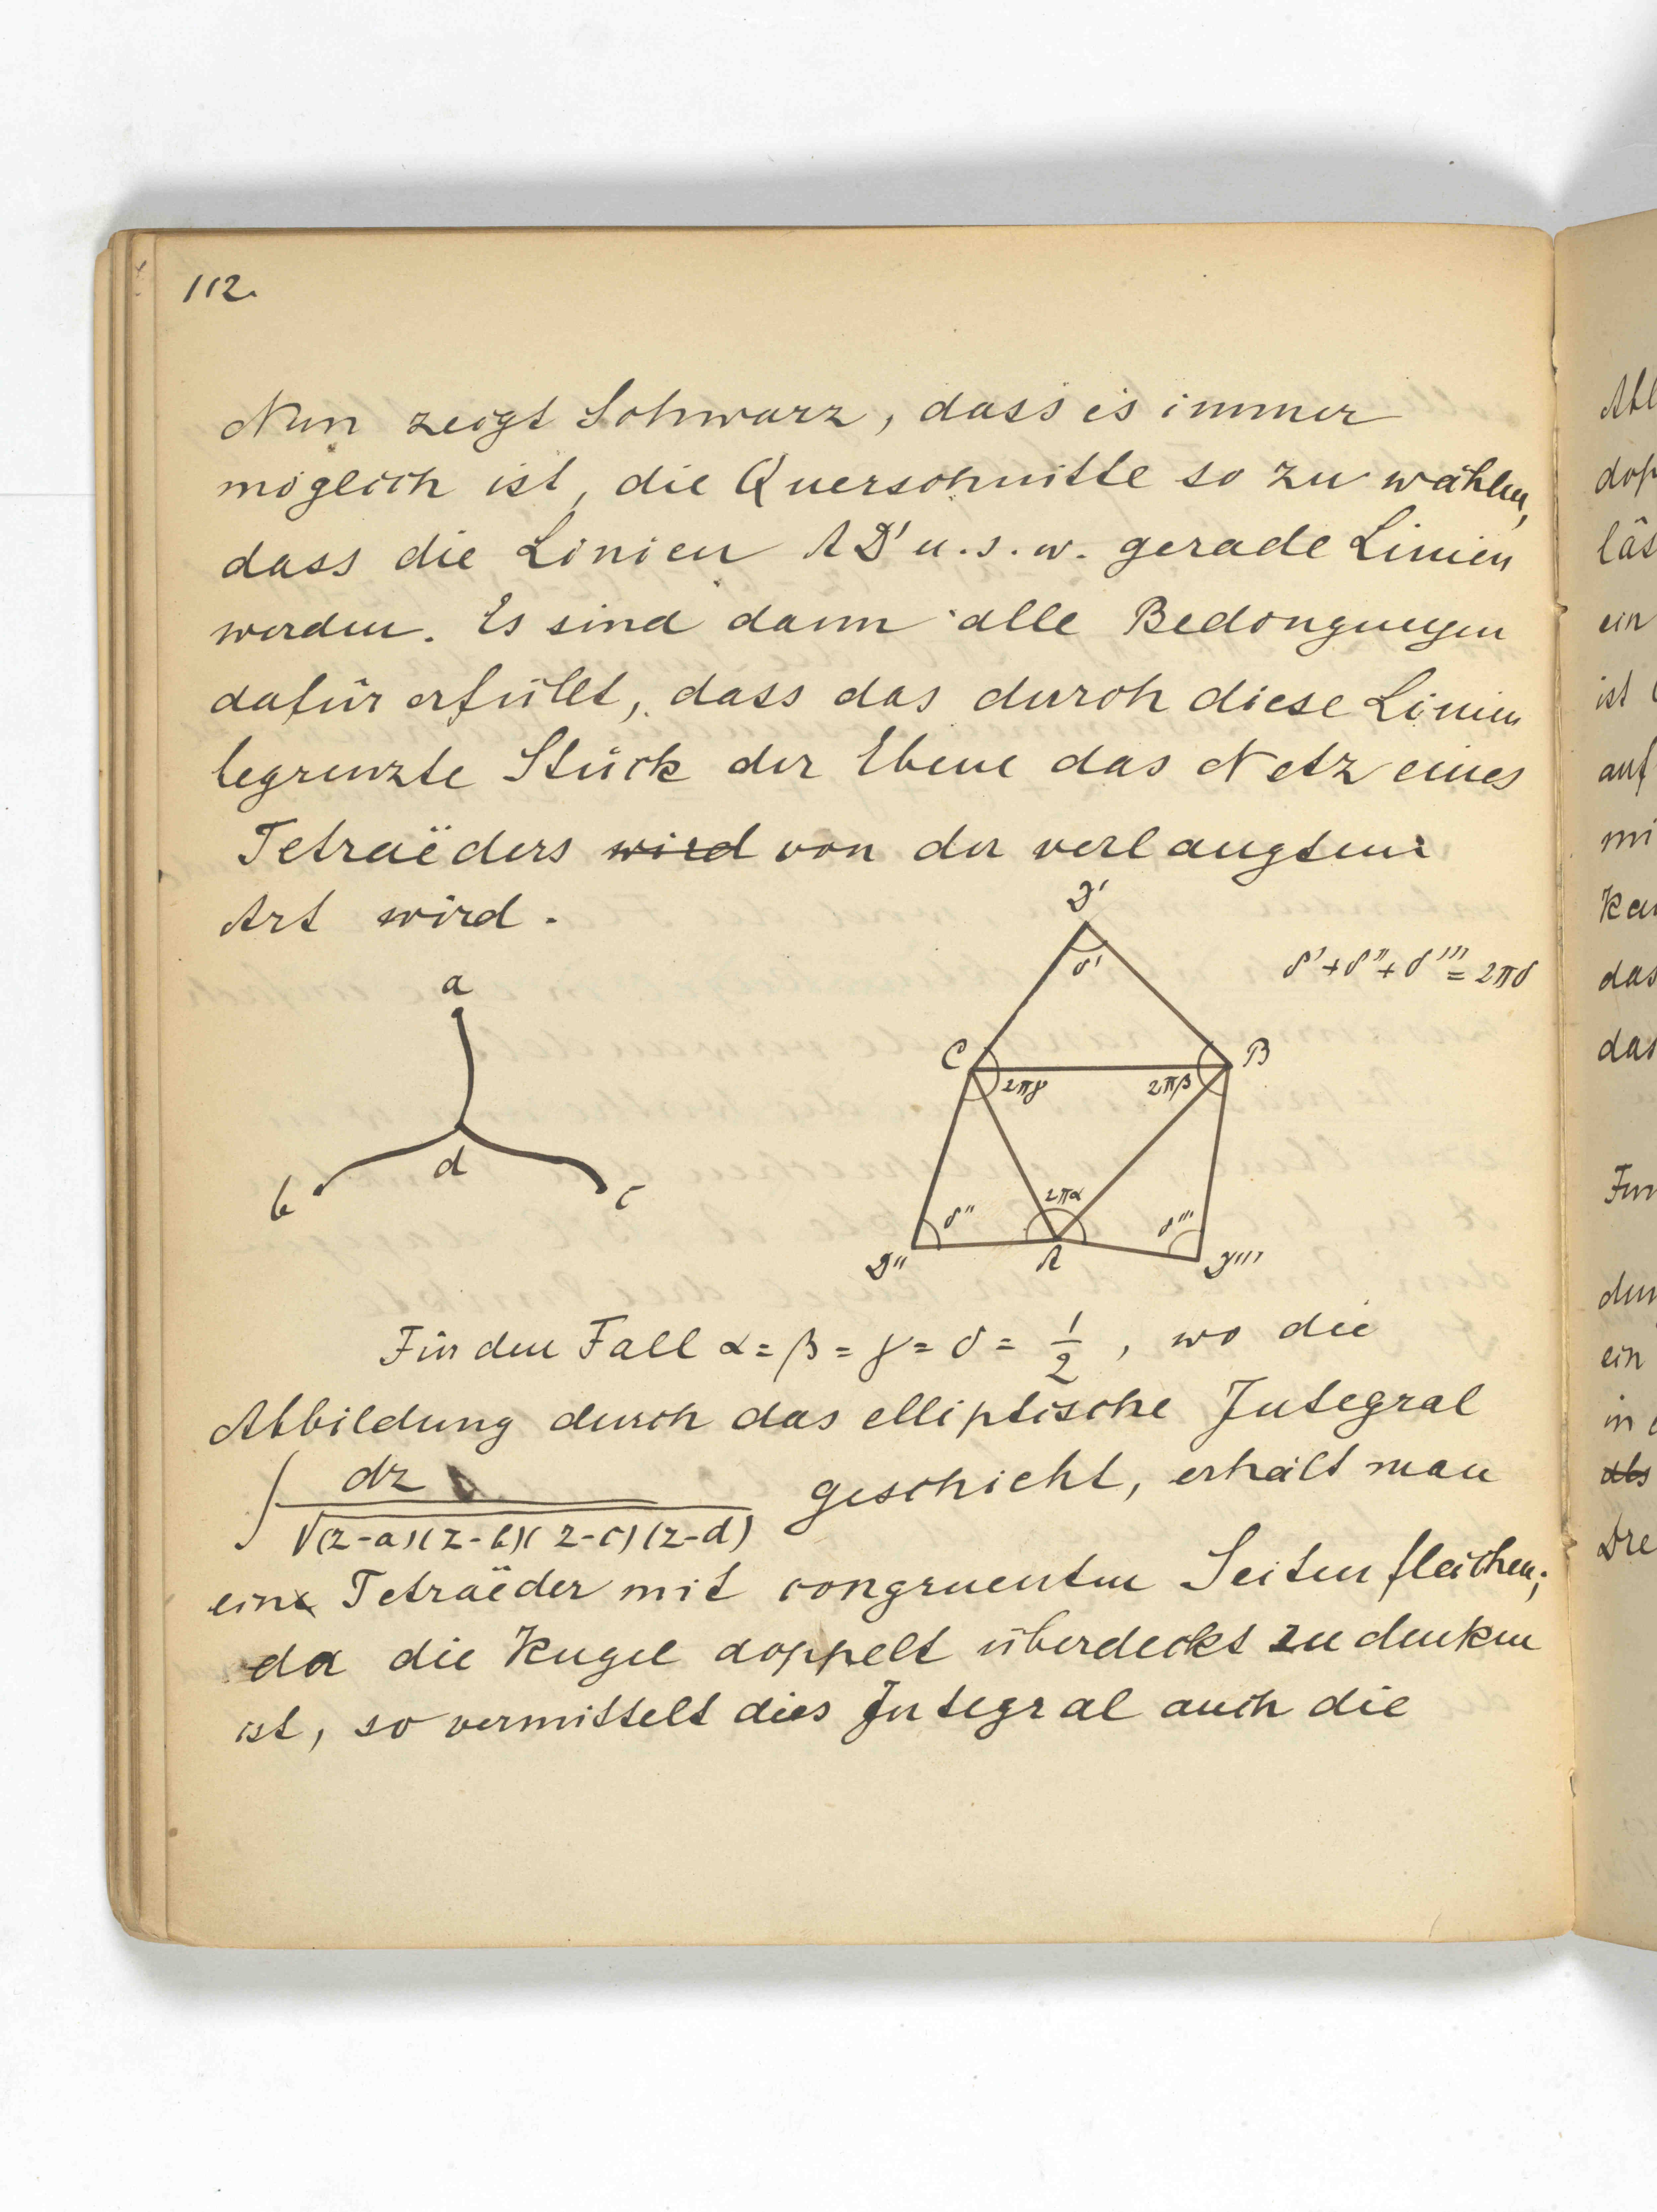 112.
Nun zeigt Schwarz, dass es immer
möglich ist, die Querschnitte so zu wählen,
dass die Linien AD' u.s.w. gerade Linien
werden. Es sind dann alle Bedingungen
dafür erfüllt, dass das durch diese Linien
begrenzte Stück der Ebene das Netz eines
Tetraëders wird von der verlangten
Art wird.
D'
δ'
δ'+δ''+δ'''=2πδ
a
C
B
2πγ
2πβ
d
b
c
2πα
δ''
δ'''
D''
A
D'''
Für den Fall α=β=γ=δ=1/2, wo die
Abbildung durch das elliptische Integral
∫ dz / √(z-a)(z-b)(z-c)(z-d) geschieht, erhält man
ein Tetraëder mit congruenten Seitenflächen;
da die Kugel doppelt überdeckt zu denken
ist, so vermittelt dies Integral auch die
dop
ein
ist
auf
mi
das
das
ein
in
als